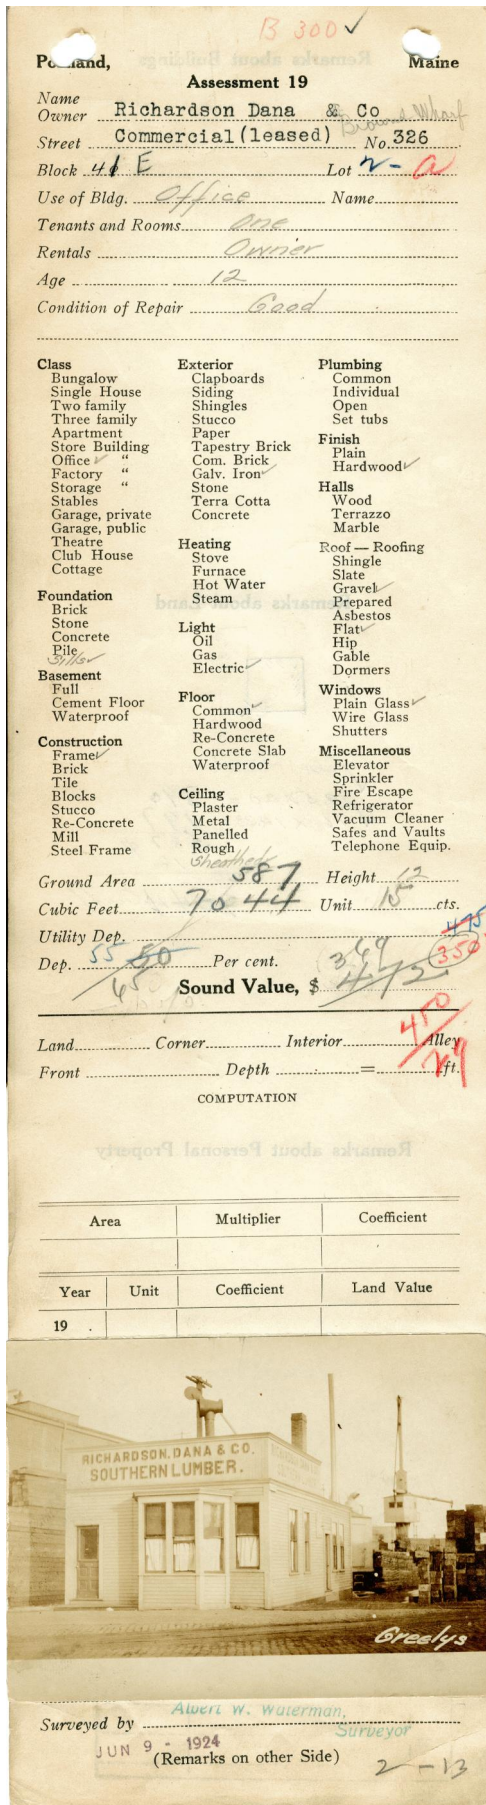 B 300 ✓
Portland, Maine
Assessment 19
Name
Owner Richardson Dana & Co
Browns Wharf
Street Commercial (leased) No. 326
Block 41 E Lot 2- a
Use of Bldg. Office Name
Tenants and Rooms One
Rentals Owner
Age 12
Condition of Repair Good
Class
Bungalow
Single House
Two family
Three family
Apartment
Store Building
Office ✓ "
Factory "
Storage "
Stables
Garage, private
Garage, public
Theatre
Club House
Cottage
Foundation
Brick
Stone
Concrete
Pile
Sills ✓
Basement
Full
Cement Floor
Waterproof
Construction
Frame ✓
Brick
Tile
Blocks
Stucco
Re-Concrete
Mill
Steel Frame
Exterior
Clapboards
Siding
Shingles
Stucco
Paper
Tapestry Brick
Com. Brick
Galv. Iron ✓
Stone
Terra Cotta
Concrete
Heating
Stove
Furnace
Hot Water
Steam
Light
Oil
Gas
Electric ✓
Floor
Common ✓
Hardwood
Re-Concrete
Concrete Slab
Waterproof
Ceiling
Plaster
Metal
Panelled
Rough
Sheathed
Plumbing
Common
Individual
Open
Set tubs
Finish
Plain
Hardwood ✓
Halls
Wood
Terrazzo
Marble
Roof — Roofing
Shingle
Slate
Gravel ✓
Prepared
Asbestos
Flat ✓
Hip
Gable
Dormers
Windows
Plain Glass ✓
Wire Glass
Shutters
Miscellaneous
Elevator
Sprinkler
Fire Escape
Refrigerator
Vacuum Cleaner
Safes and Vaults
Telephone Equip.
Ground Area 587 Height 12
Cubic Feet 7044 Unit 15 cts.
Utility Dep. 475
Dep. 55 50 Per cent. 369 350
65
Sound Value, $ 472
450
Land Corner Interior Alley
Front Depth = ft.
COMPUTATION
Area Multiplier Coefficient
Year Unit Coefficient Land Value
19 .
RICHARDSON, DANA & CO.
SOUTHERN LUMBER.
Greelys
Surveyed by Albert W. Waterman,
Surveyor
JUN 9 - 1924
(Remarks on other Side)
2 -13